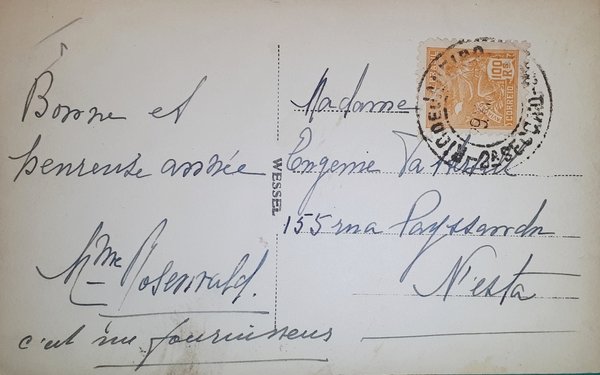 Bonne et
heureuse année
Mme Rosenwald.
c'est un fournisseur
WESSEL
Madame
Eugenie
155 rua Payssandu
N'esta
100
RS
CORREIO
RIO DE JANEIRO
2ª SEC